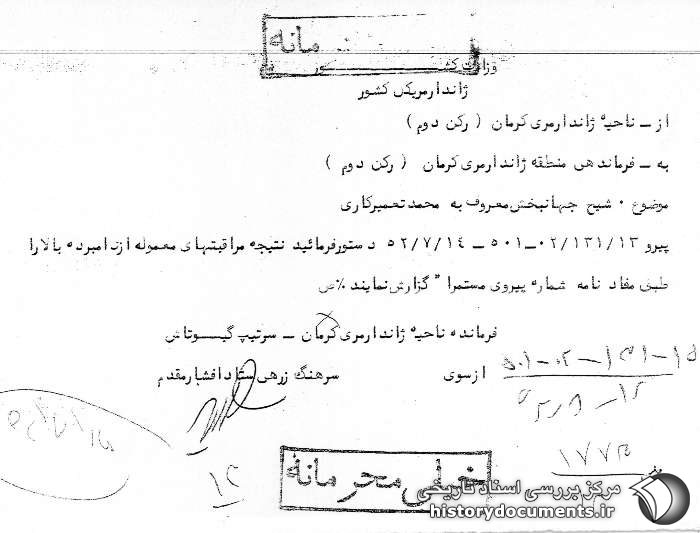 مانه
وزارت کشور
ژاندارمری کل کشور
از ـ ناحیه ژاندارمری کرمان ( رکن دوم )
به ـ فرماندهی منطقه ژاندارمری کرمان ( رکن دوم )
موضوع ۰ شیخ جهانبخش معروف به محمد تعمیرکاری
پیرو ۰۲/۱۳۱/۱۳ــ۵۰۱ ــ ۵۲/۷/۱۴ دستور فرمائید نتیجه مراقبتهای معموله از نامبرده بالا را
طبق مفاد نامه شماره پیروی مستمرا" گزارش نمایند
فرمانده ناحیه ژاندارمری کرمان ـ سرتیپ گیوتاش
از سوی سرهنگ زرهی ستاد افشار مقدم
۵۰۱-۰۲-۱۳۱-۱۵
۱۷۷۳
۱۲
خیلی محرمانه
مرکز بررسی اسناد تاریخی
historydocuments.ir